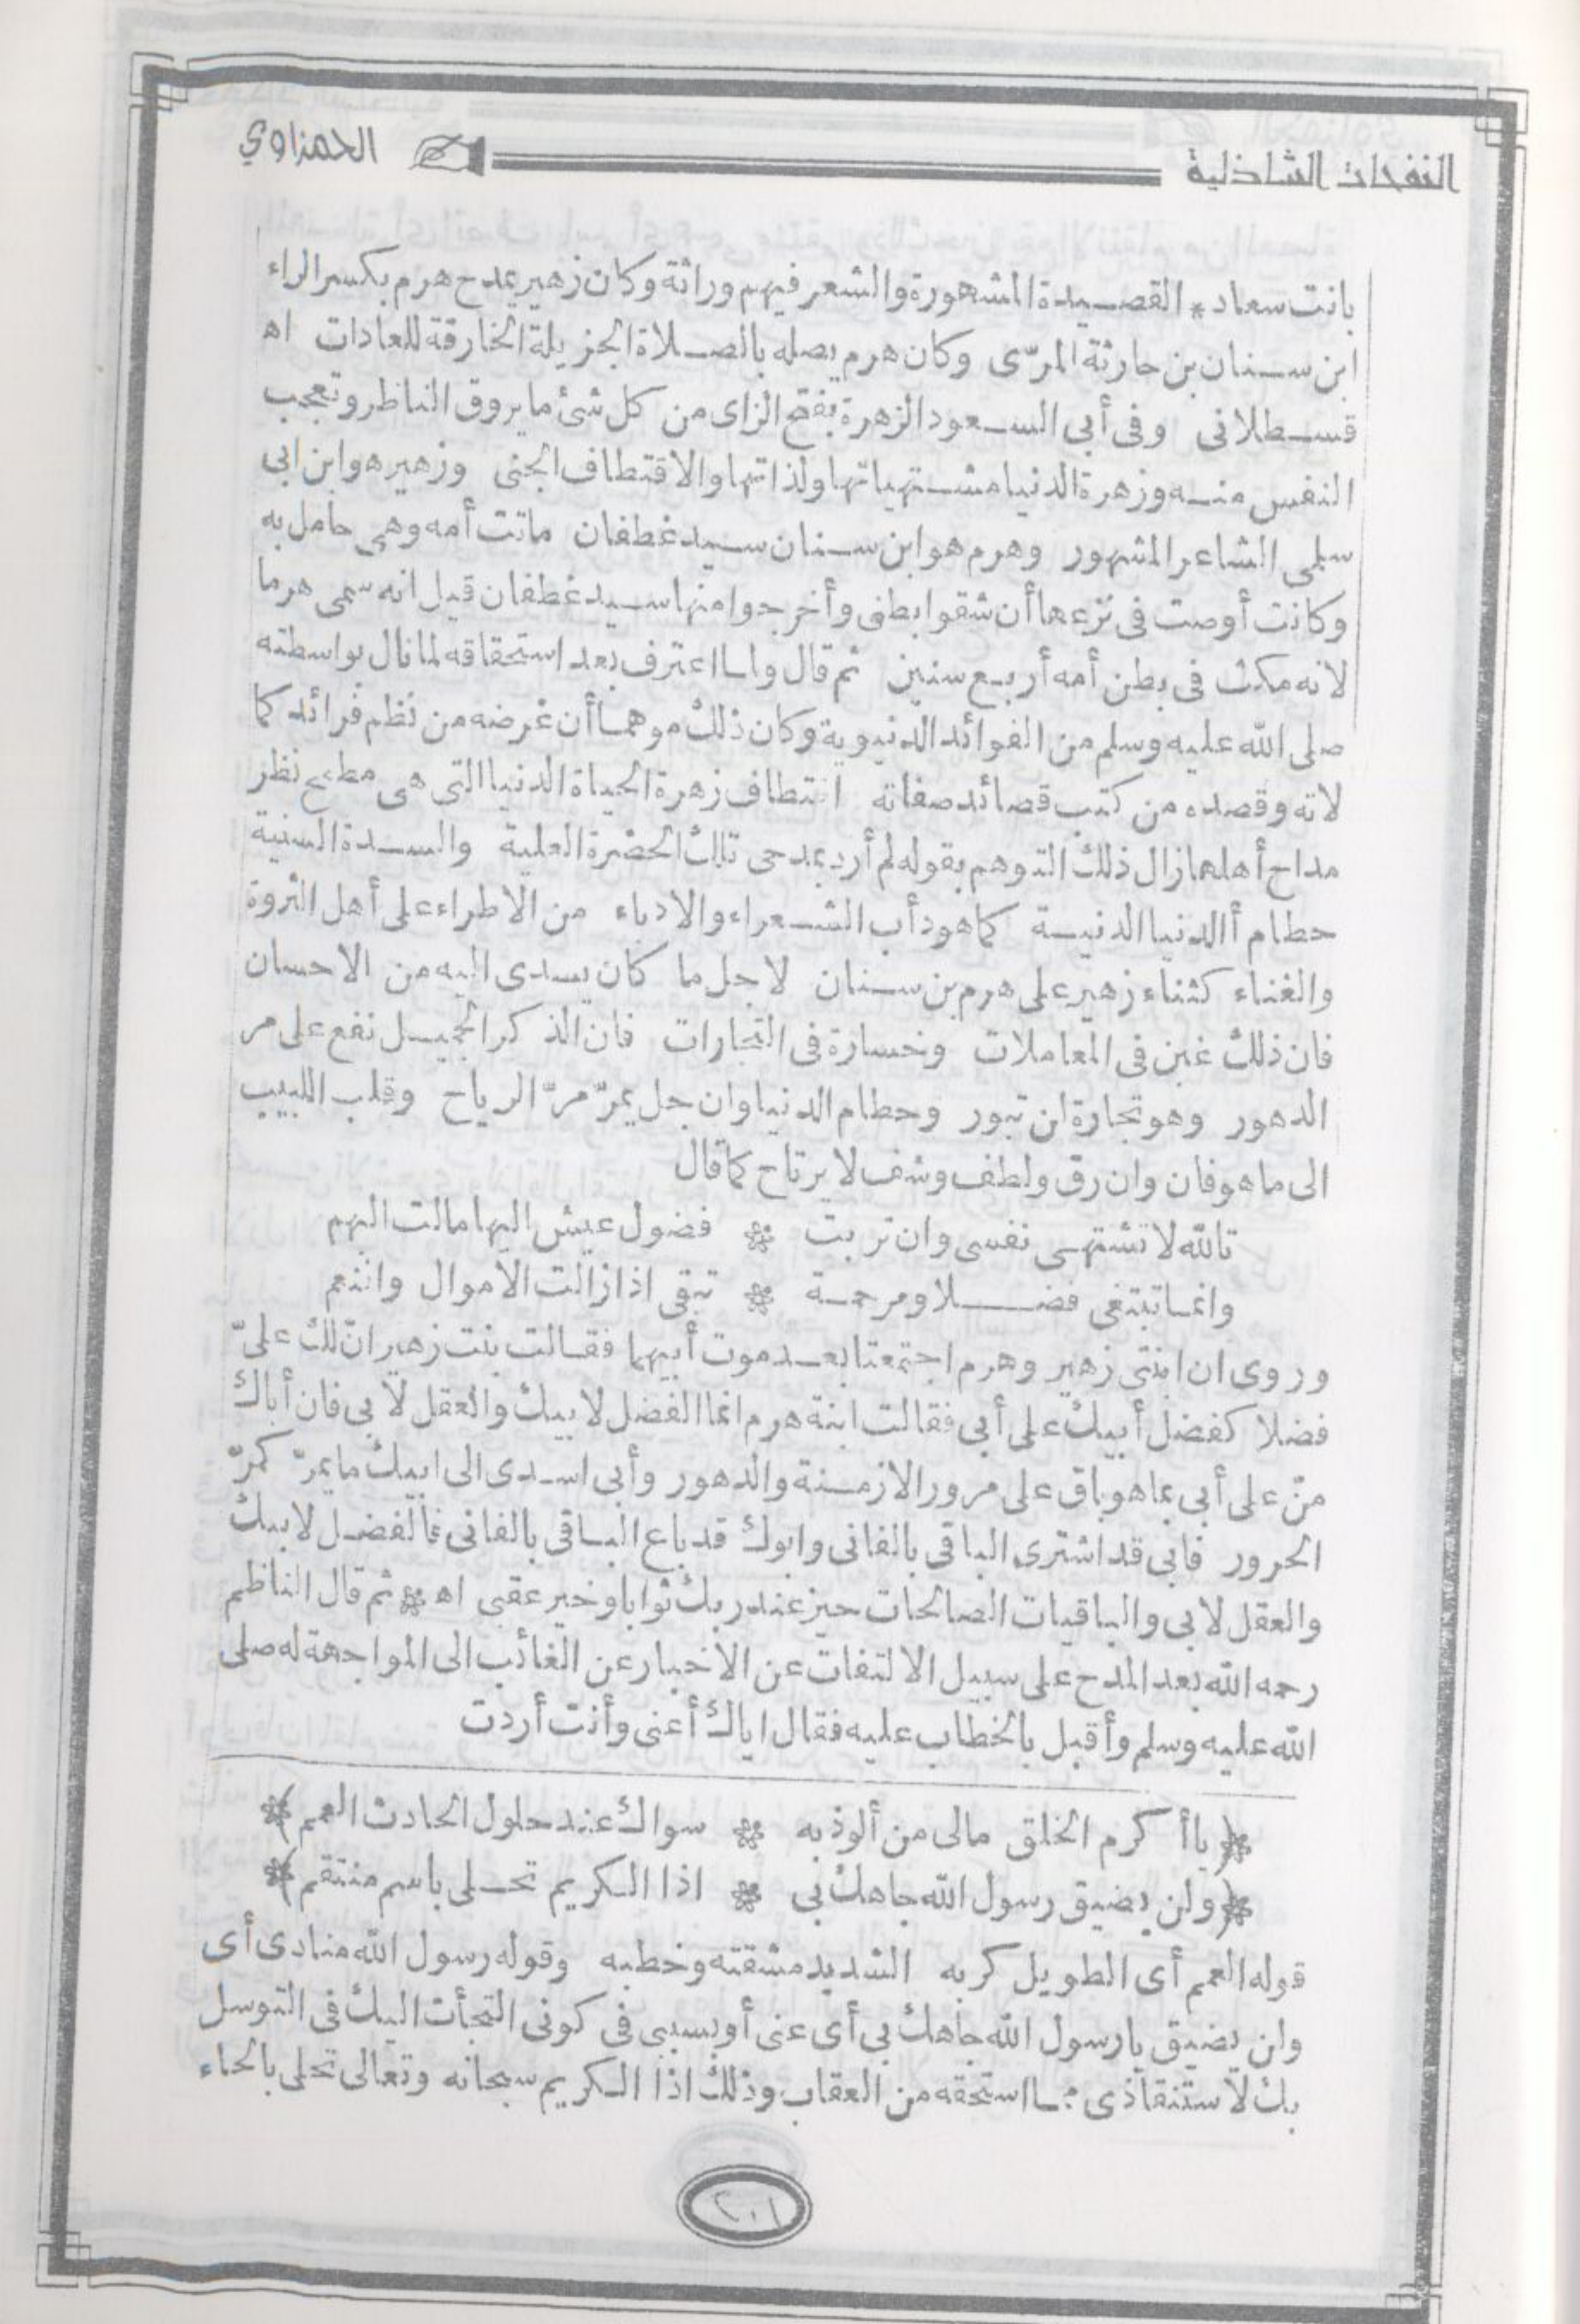 النفحات الشاذلية الحمزاوي
بانت سعاد * القصيدة المشهورة والشعر فيهم وراثة وكان زهير يمدح هرم بكسر الراء
ابن سنان بن حارثة المرّى وكان هرم يصله بالصلاة الجزيلة الخارقة للعادات اه
قسطلانى وفى أبى السعود الزهرة بفتح الزاى من كل شئ ما يروق الناظر وتعجب
النفس منه وزهرة الدنيا مشتهياتها ولذاتها والاقتطاف الجنى وزهير هو ابن ابى
سلمى الشاعر المشهور وهرم هو ابن سنان سيد غطفان ماتت أمه وهى حامل به
وكانت أوصت فى نزعها أن شقوا بطنى وأخرجوا منها سيد غطفان قيل انه سمى هرما
لانه مكث فى بطن أمه أربع سنين ثم قال ولما اعترف بعد استحقاقه لما نال بواسطته
صلى الله عليه وسلم من الفوائد الدنيوية وكان ذلك موهما أن غرضه من نظم فرائد كما
لاته وقصده من كتب قصائد صفاته اقتطاف زهرة الحياة الدنيا التى هى مطمح نظر
مداح أهلها زال ذلك التوهم بقوله لم أرد بمدحى تلك الحضرة العلية والسدة السنية
حطام أالدنيا الدنية كما هو دأب الشعراء والادباء من الاطراء على أهل الثروة
والغناء كثناء زهير على هرم بن سنان لاجل ما كان يسدى اليه من الاحسان
فان ذلك غبن فى المعاملات وخسارة فى التجارات فان الذكر الجميل نفع على مر
الدهور وهو تجارة لن تبور وحطام الدنيا وان جل يمرّ مرّ الرياح وقلب اللبيب
الى ما هو فان وان رق ولطف وشف لا يرتاح كما قال
تالله لا تشتهى نفسى وان تربت * فضول عيش اليها مالت الهمم
وانما تبتغى فضلا ومرحمة * تبقى اذا زالت الاموال والنعم
وروى ان ابنتى زهير وهرم اجتمعتا بعد موت أبيهما فقالت بنت زهير انّ لك علىّ
فضلا كفضل أبيك على أبى فقالت ابنة هرم انما الفضل لابيك والعقل لابى فان أباك
منّ على أبى بما هو باق على مرور الازمنة والدهور وأبى اسدى الى ابيك ما يمرّ كمرّ
الحرور فابى قد اشترى الباقى بالفانى وابوك قد باع الباقى بالفانى فالفضل لابيك
والعقل لابى والباقيات الصالحات خير عند ربك ثوابا وخير عقبى اه * ثم قال الناظم
رحمه الله بعد المدح على سبيل الالتفات عن الاخبار عن الغائب الى المواجهة له صلى
الله عليه وسلم وأقبل بالخطاب عليه فقال اياك أعنى وأنت أردت
*(يا أكرم الخلق مالى من ألوذ به * سواك عند حلول الحادث العمم)*
*(ولن يضيق رسول الله جاهك بى * اذا الكريم تحلى باسم منتقم)*
قوله العمم أى الطويل كربه الشديد مشقته وخطبه وقوله رسول الله منادى أى
ولن يضيق يا رسول الله جاهك بى أى عنى أو بسببى فى كونى التجأت اليك فى التوسل
بك لاستنقاذى مما استحقه من العقاب وذلك اذا الكريم سبحانه وتعالى تحلى بالحاء
٢٠١